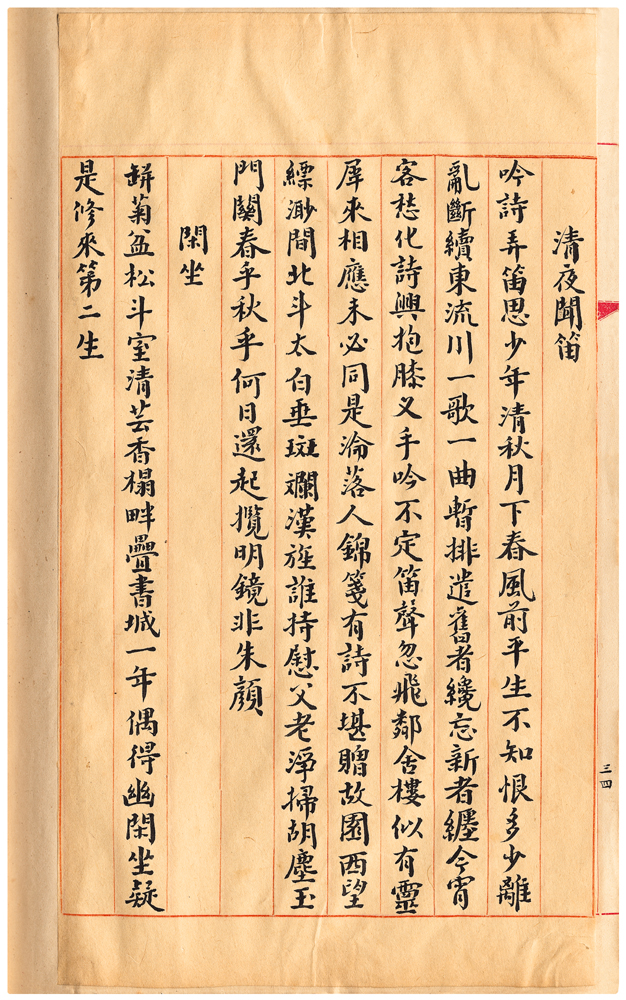 清夜聞笛
吟詩弄笛思少年清秋月下春風前平生不知恨多少離
亂斷續東流川一歌一曲暫排遣舊者纔忘新者纏今宵
客愁化詩興抱膝叉手吟不定笛聲忽飛鄰舍樓似有靈
犀來相應未必同是淪落人錦箋有詩不堪贈故園西望
縹渺間北斗太白垂斑斕漢旌誰持慰父老淨掃胡塵玉
門關春乎秋乎何日還起攬明鏡非朱顏
閑坐
缾菊盆松斗室清芸香榻畔疊書城一年偶得幽閑坐疑
是修來第二生
三四